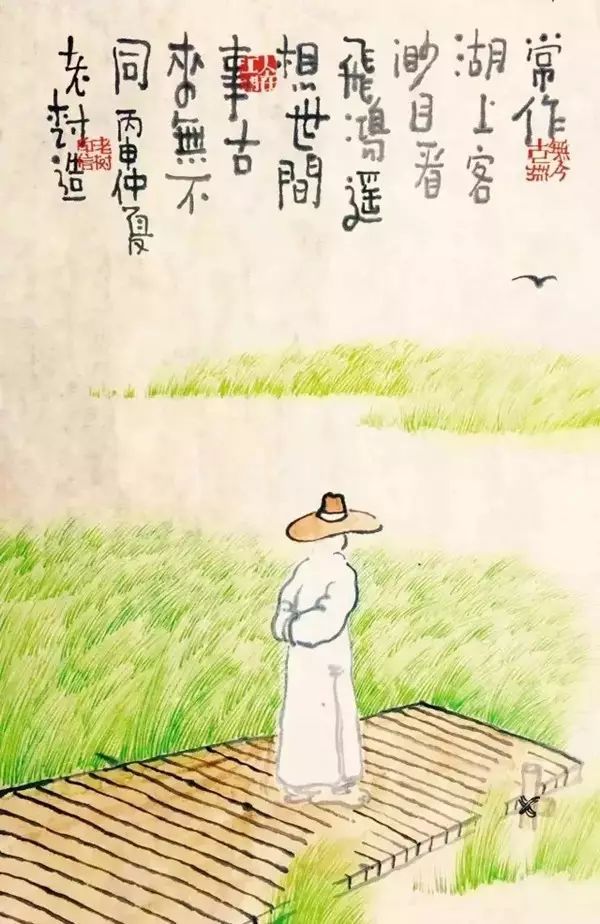 常作
湖上客
渺目看
飛鴻遥
想世間
事古
來無不
同丙申仲夏
老樹造
無今
古無
老树